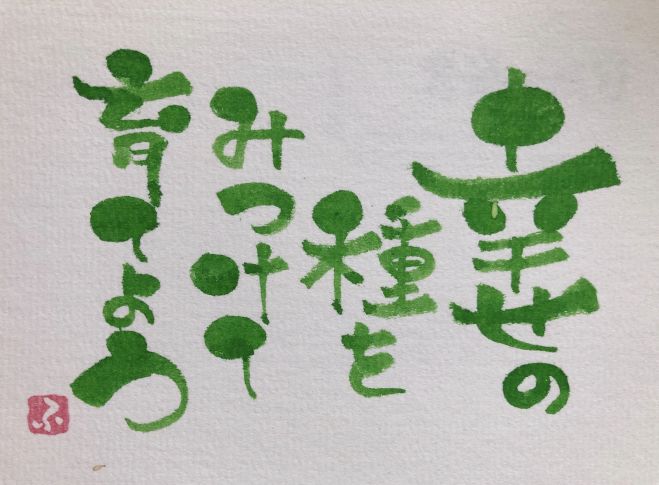 幸せの
種を
みつけて
育てよう
ふ